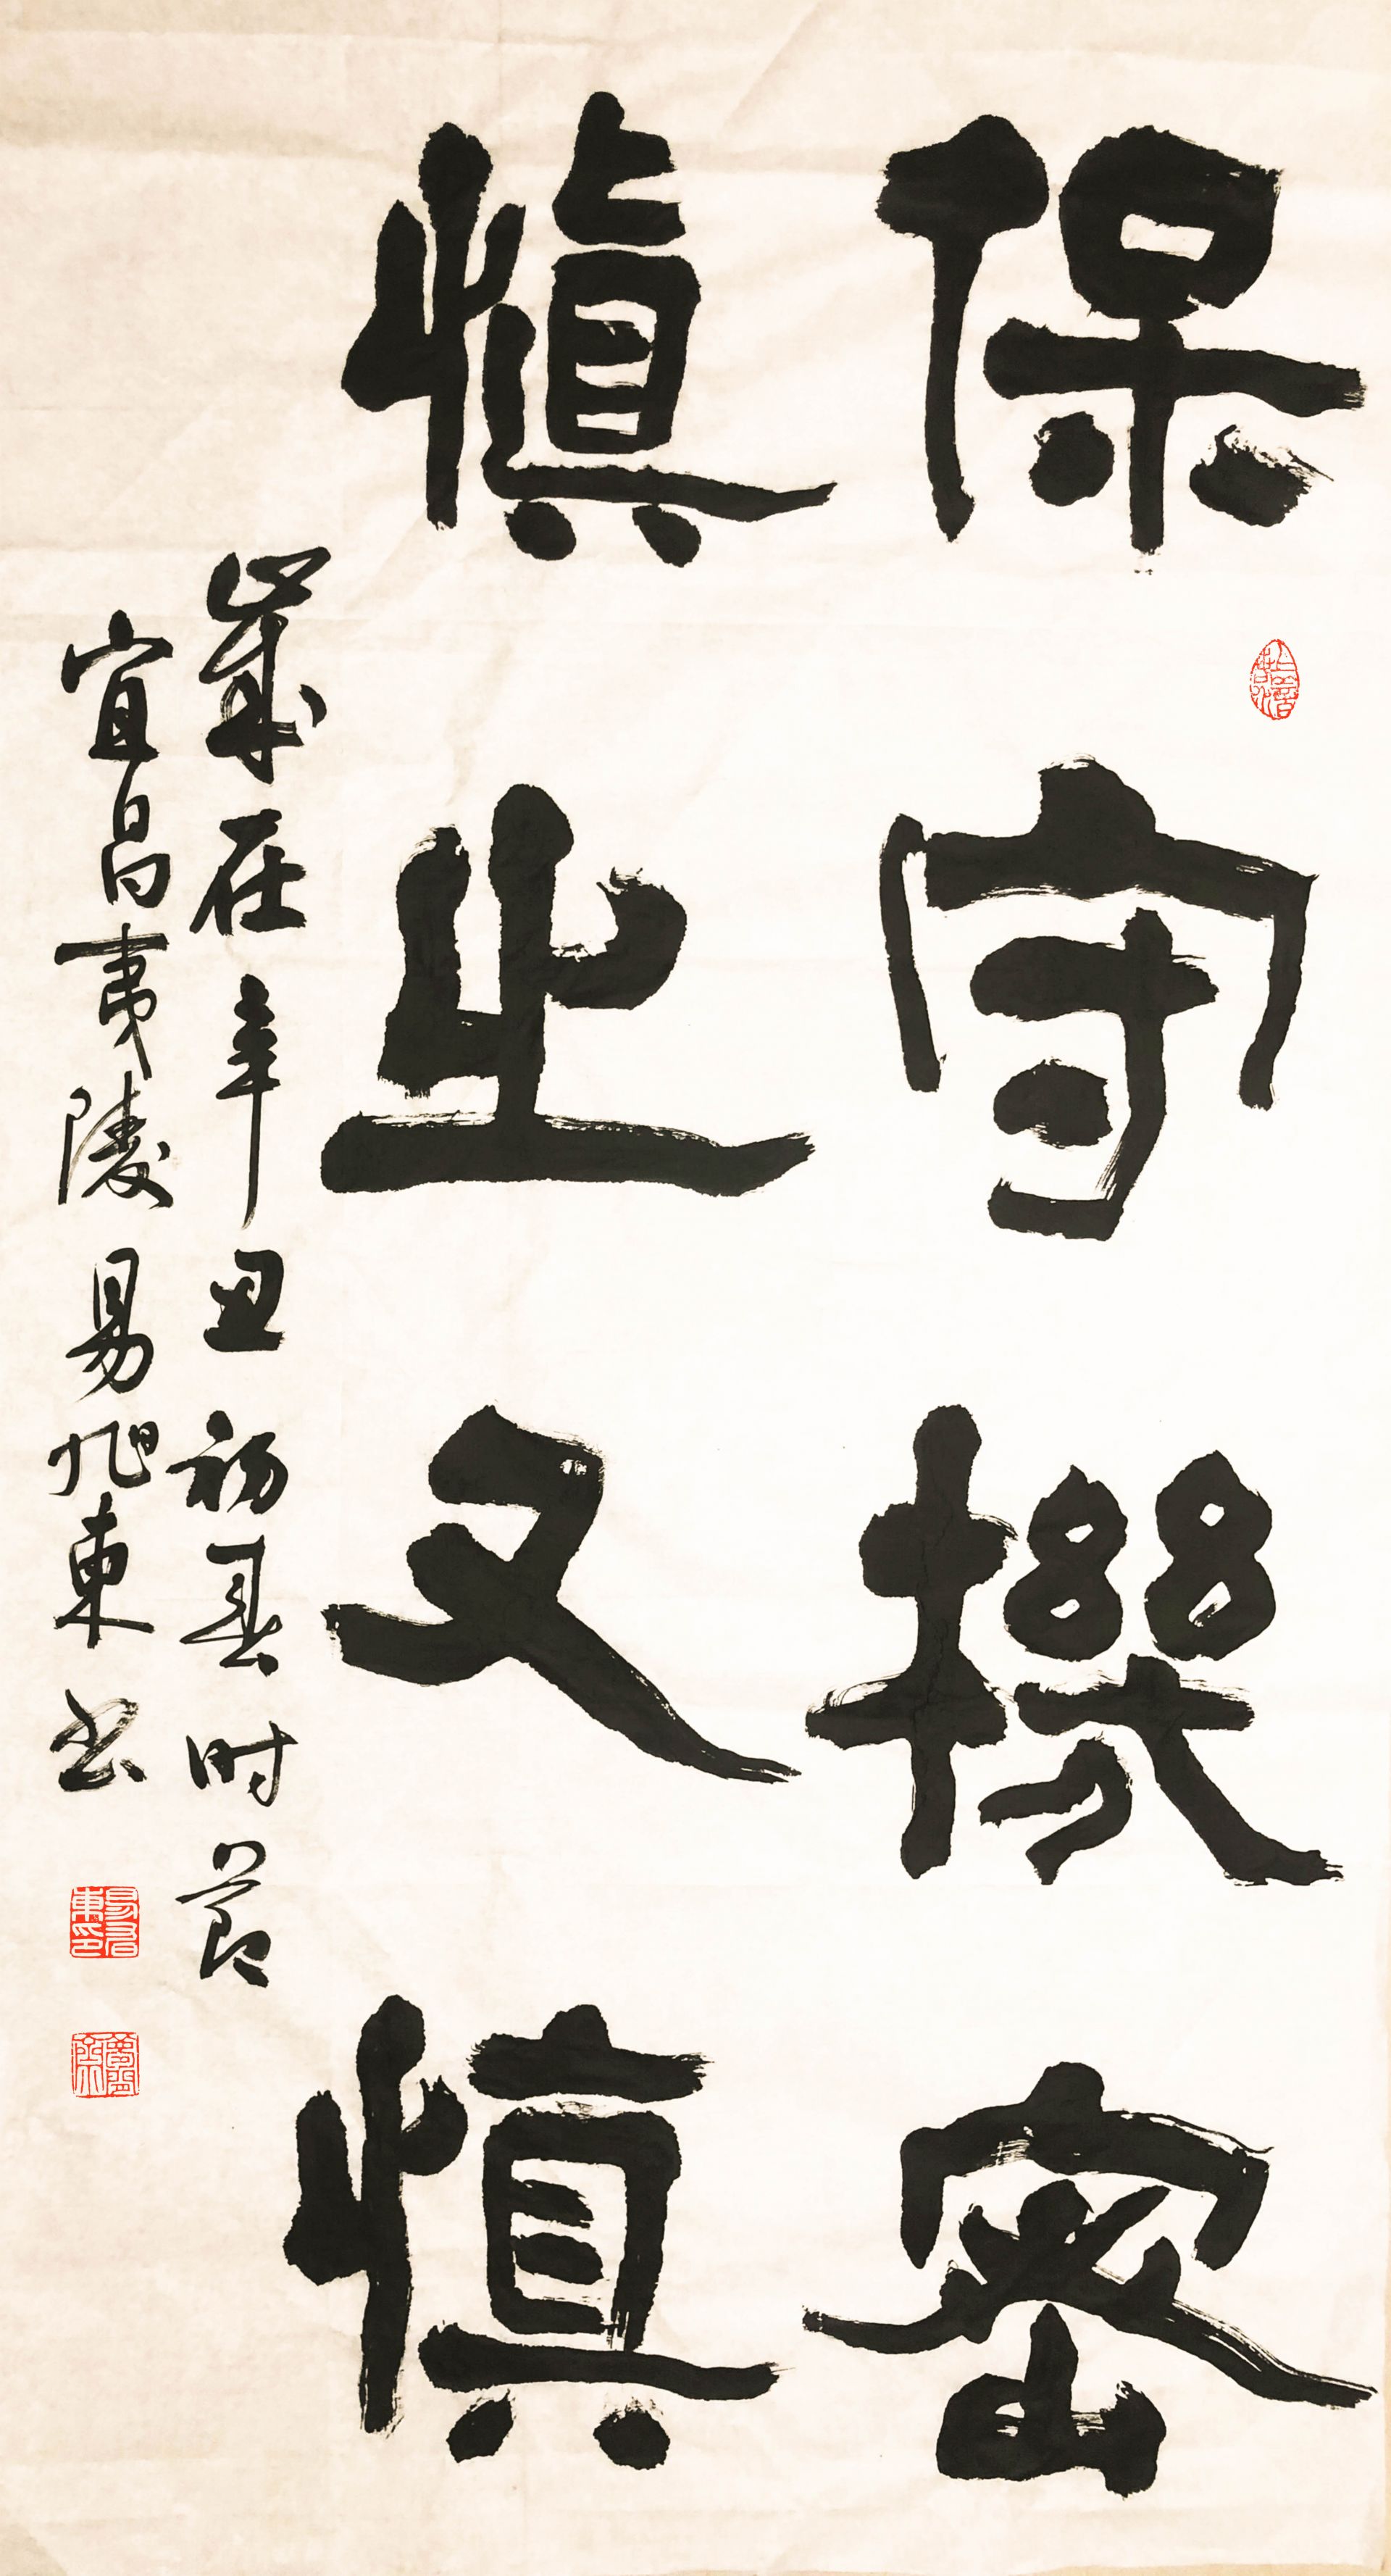 保守機密
慎之又慎
歲在辛丑初春时节
宜昌夷陵易旭東书